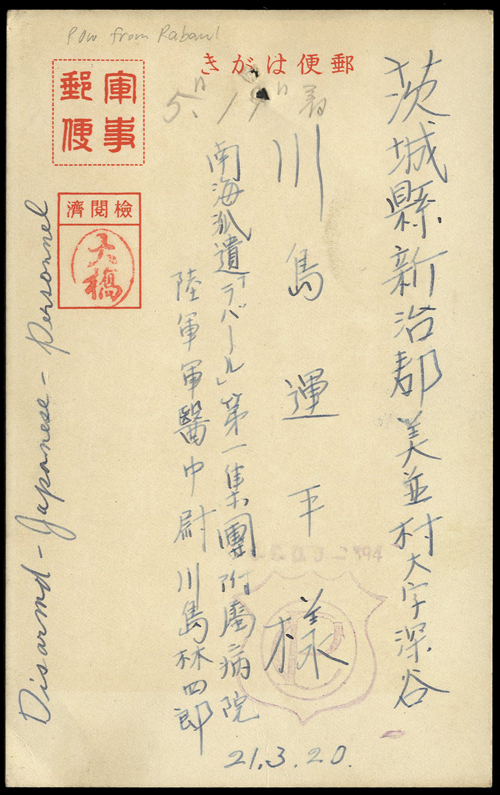 POW from Rabaul
きがは便郵
軍事
郵便
5.19着
檢閲済
大橋
茨城縣新治郡美並村大字深谷
川島運平様
南海派遣「ラバール」第一集團附属病院
陸軍軍醫中尉川島林四郎
21.3.20.
Disarmd-Japanese-Personnel